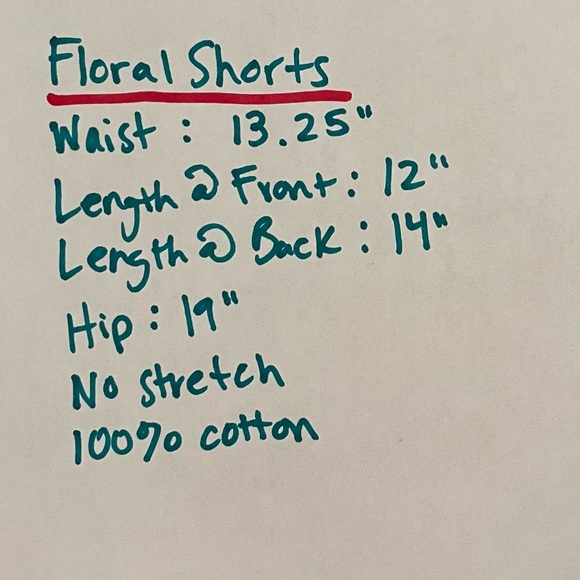 Floral Shorts
Waist : 13.25"
Length @ Front : 12"
Length @ Back : 14"
Hip : 19"
No stretch
100% cotton